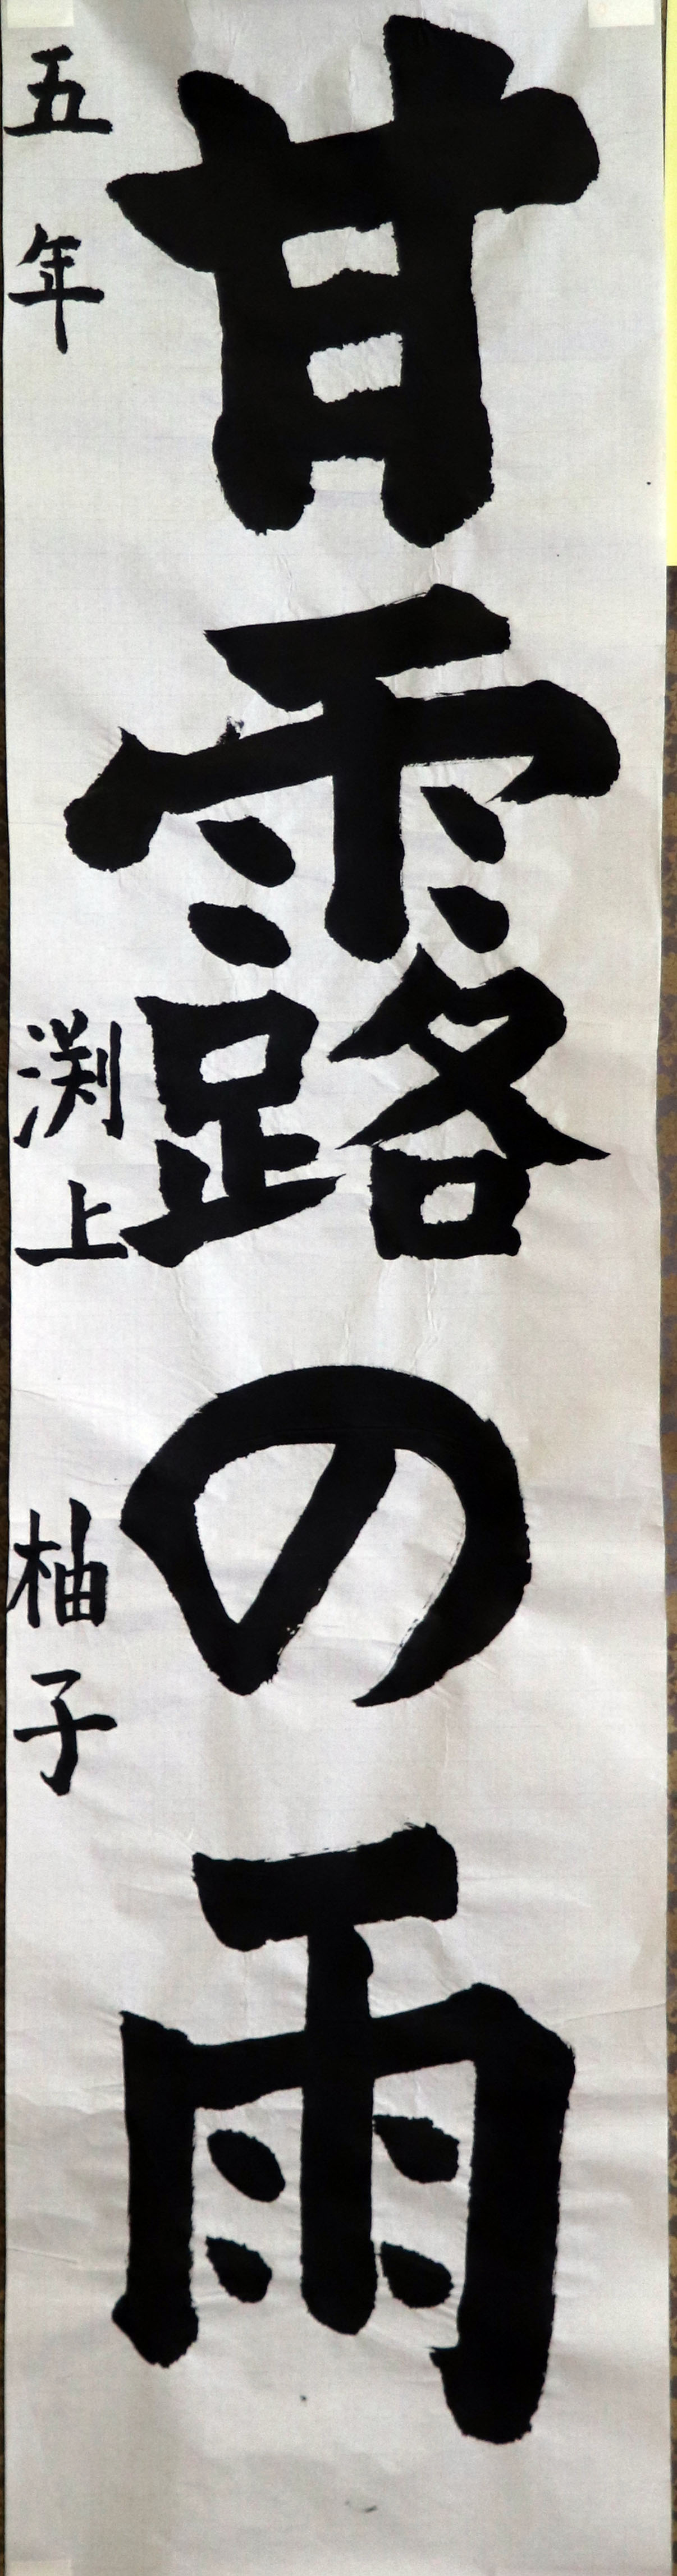 甘露の雨
五年 渕上 柚子